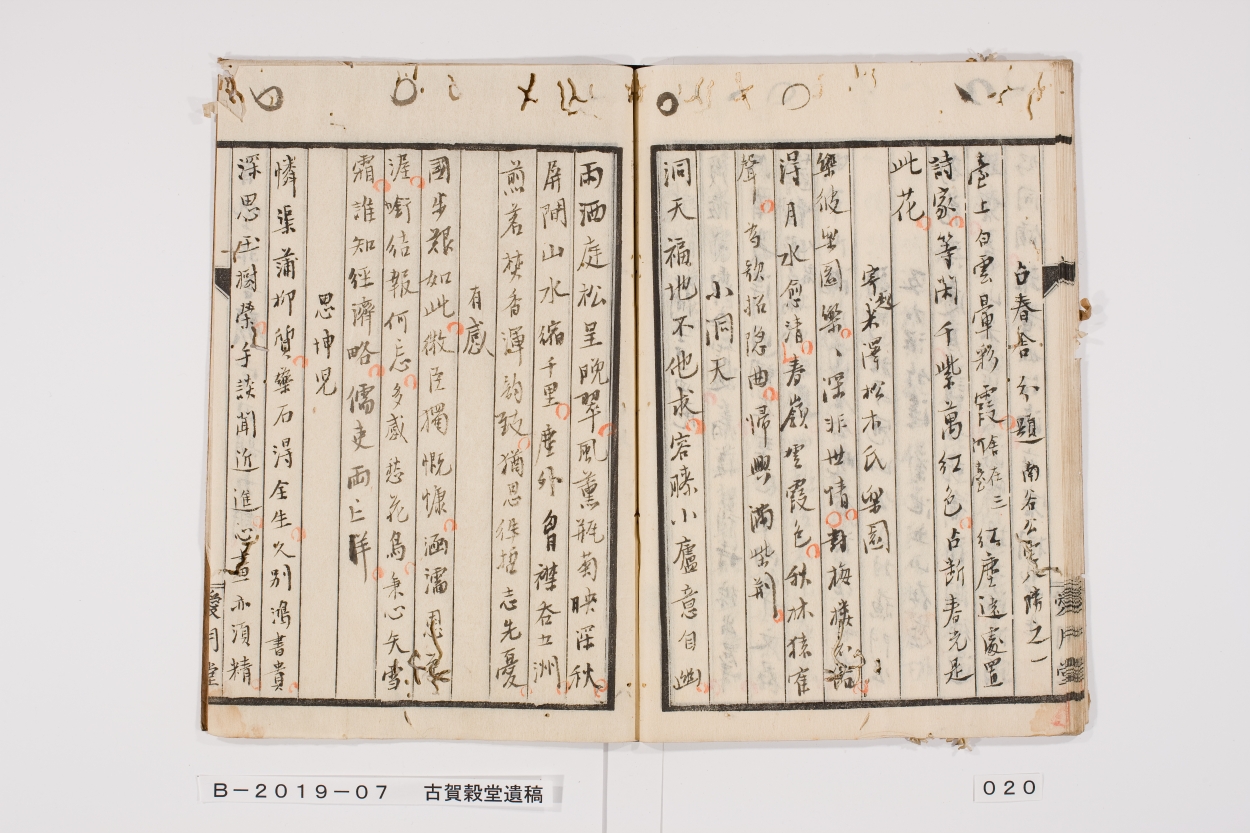 占春舎 分題 南谷公䨥八勝之一
臺上白雲暈彩霞 紅塵遠處置
舎在三
詩家等閑千紫萬紅色占断春光是
此花
寄題米澤松木氏樂園
樂彼里園樂々深非世情對梅
得月水愈清春嶺雲霞色秋林猿隺
聲 為歌招隠曲帰興満紫荊
小洞天
洞天福地不他求容膝小廬意自幽
雨洒庭松呈晩翠風薫瓶菊映深秋
屏間山水縮千里塵外胷襟呑五洲
煎茗焚香渾韵致猶思経 志先憂
有感
國歩艱如此微臣獨慨慷涵濡恩
渥 結報何忘多感愁花鳥秉心矢雪
霜誰知經濟略儒吏両亡羊
思坤児
憐渠蒲柳質藥石得全生久別鴻書貴
深思玉樹榮手談聞近進心畫亦須精
愛月堂
愛月堂
B－2019－07 古賀穀堂遺稿
020